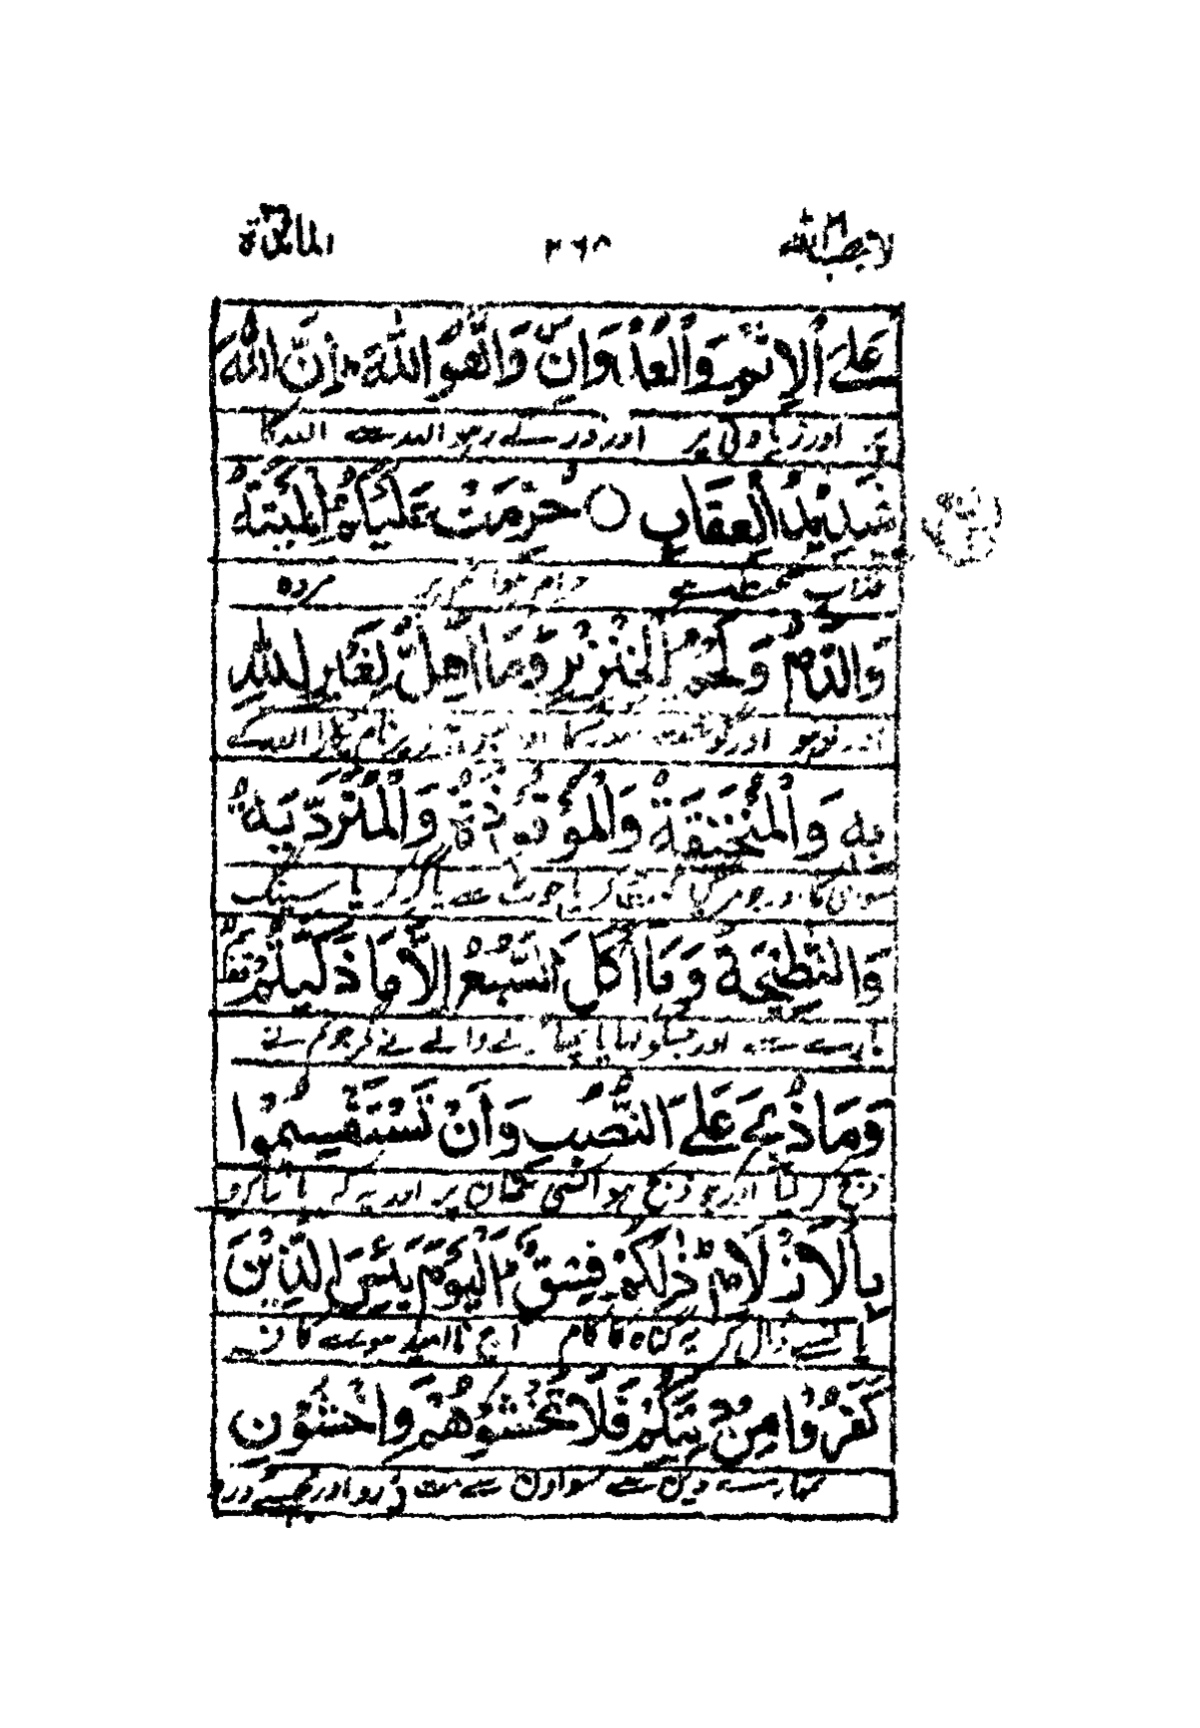 لا يحب الله ٢٦٨ المائدة
عَلَى الْإِثْمِ وَالْعُدْوَانِ وَاتَّقُوا اللَّهَ إِنَّ اللَّهَ
پر اور زیادتی پر اور ڈرتے رہو اللہ سے اللہ کا
شَدِيدُ الْعِقَابِ ○ حُرِّمَتْ عَلَيْكُمُ الْمَيْتَةُ
عذاب سخت ہے حرام ہوا تم پر مردہ
وَالدَّمُ وَلَحْمُ الْخِنْزِيرِ وَمَا أُهِلَّ لِغَيْرِ اللَّهِ
اور لہو اور گوشت سور کا اور جس پر نام پکارا اللہ کے
بِهِ وَالْمُنْخَنِقَةُ وَالْمَوْقُوذَةُ وَالْمُتَرَدِّيَةُ
سوا کا اور جو مر گیا گھٹ کر یا چوٹ سے یا گر کر یا سینگ
وَالنَّطِيحَةُ وَمَا أَكَلَ السَّبُعُ إِلَّا مَا ذَكَّيْتُمْ
مارے سے اور جسکو کھایا پھاڑنے والے نے مگر جو تم نے
وَمَا ذُبِحَ عَلَى النُّصُبِ وَأَنْ تَسْتَقْسِمُوا
ذبح کر لیا اور جو ذبح ہوا کسی تھان پر اور یہ کہ بانٹا کرو
بِالْأَزْلَامِ ذَٰلِكُمْ فِسْقٌ الْيَوْمَ يَئِسَ الَّذِينَ
پانسے ڈال کر یہ گناہ کا کام آج نا امید ہوئے کافر
كَفَرُوا مِنْ دِينِكُمْ فَلَا تَخْشَوْهُمْ وَاخْشَوْنِ
تمہارے دین سے سو اون سے مت ڈرو اور مجھسے ڈرو